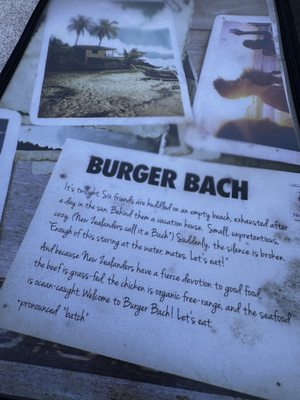 BURGER BACH
It's twilight. Six friends are huddled on an empty beach, exhausted after
a day in the sun. Behind them a vacation house. Small, unpretentious,
cozy. (New Zealanders call it a Bach*) Suddenly, the silence is broken.
"Enough of this staring at the water, mates. Let's eat!"
And because New Zealanders have a fierce devotion to good food,
the beef is grass-fed, the chicken is organic free-range, and the seafood
is ocean-caught. Welcome to Burger Bach! Let's eat.
*pronounced "batch"